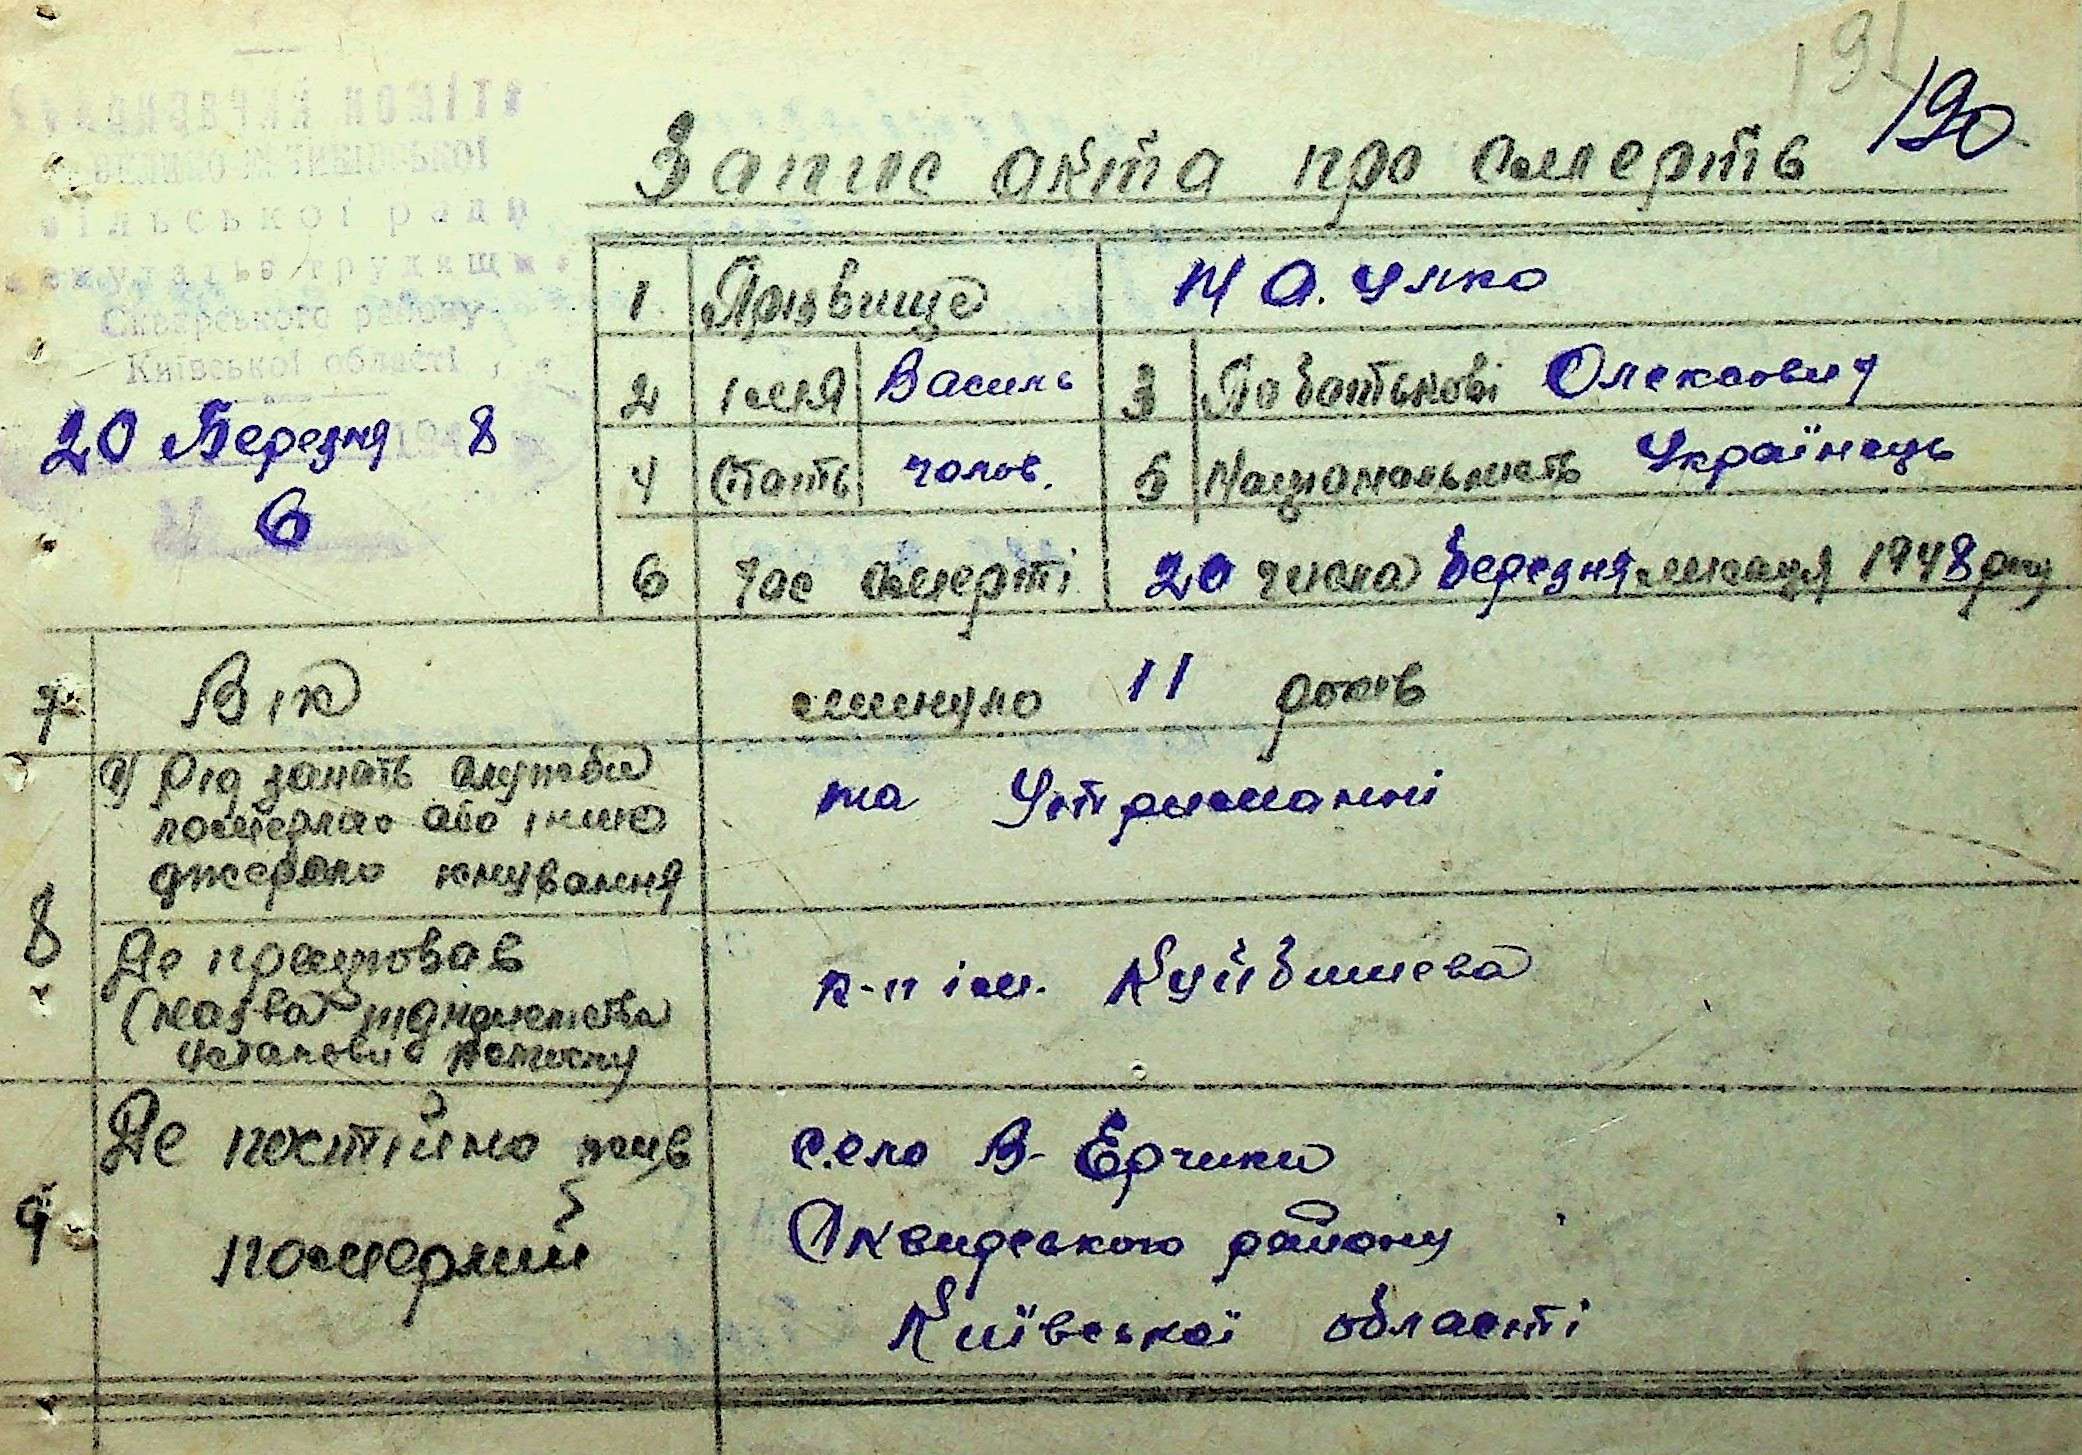 191
190
Виконавчий комітет
сільської ради
депутатів трудящих
Сквирського району
Київської області
20 Березня 1948
6
Запис акта про смерть
1 Прізвище
2 імʼя Василь 3 По батькові Олексович
4 Стать чолов. 5 Національність Українець
6 Час смерті 20 числа Березня місяця 1948 року
7 Вік минуло 11 років
8
а) Рід занять служби
померлас або інше
джерело існування
на Утриманні
Де працював
(назва підприємства
установи
к-п ім. Куйбишева
9
Де постійно жив
померлий
село В-Єрчики
Сквирського району
Київської області